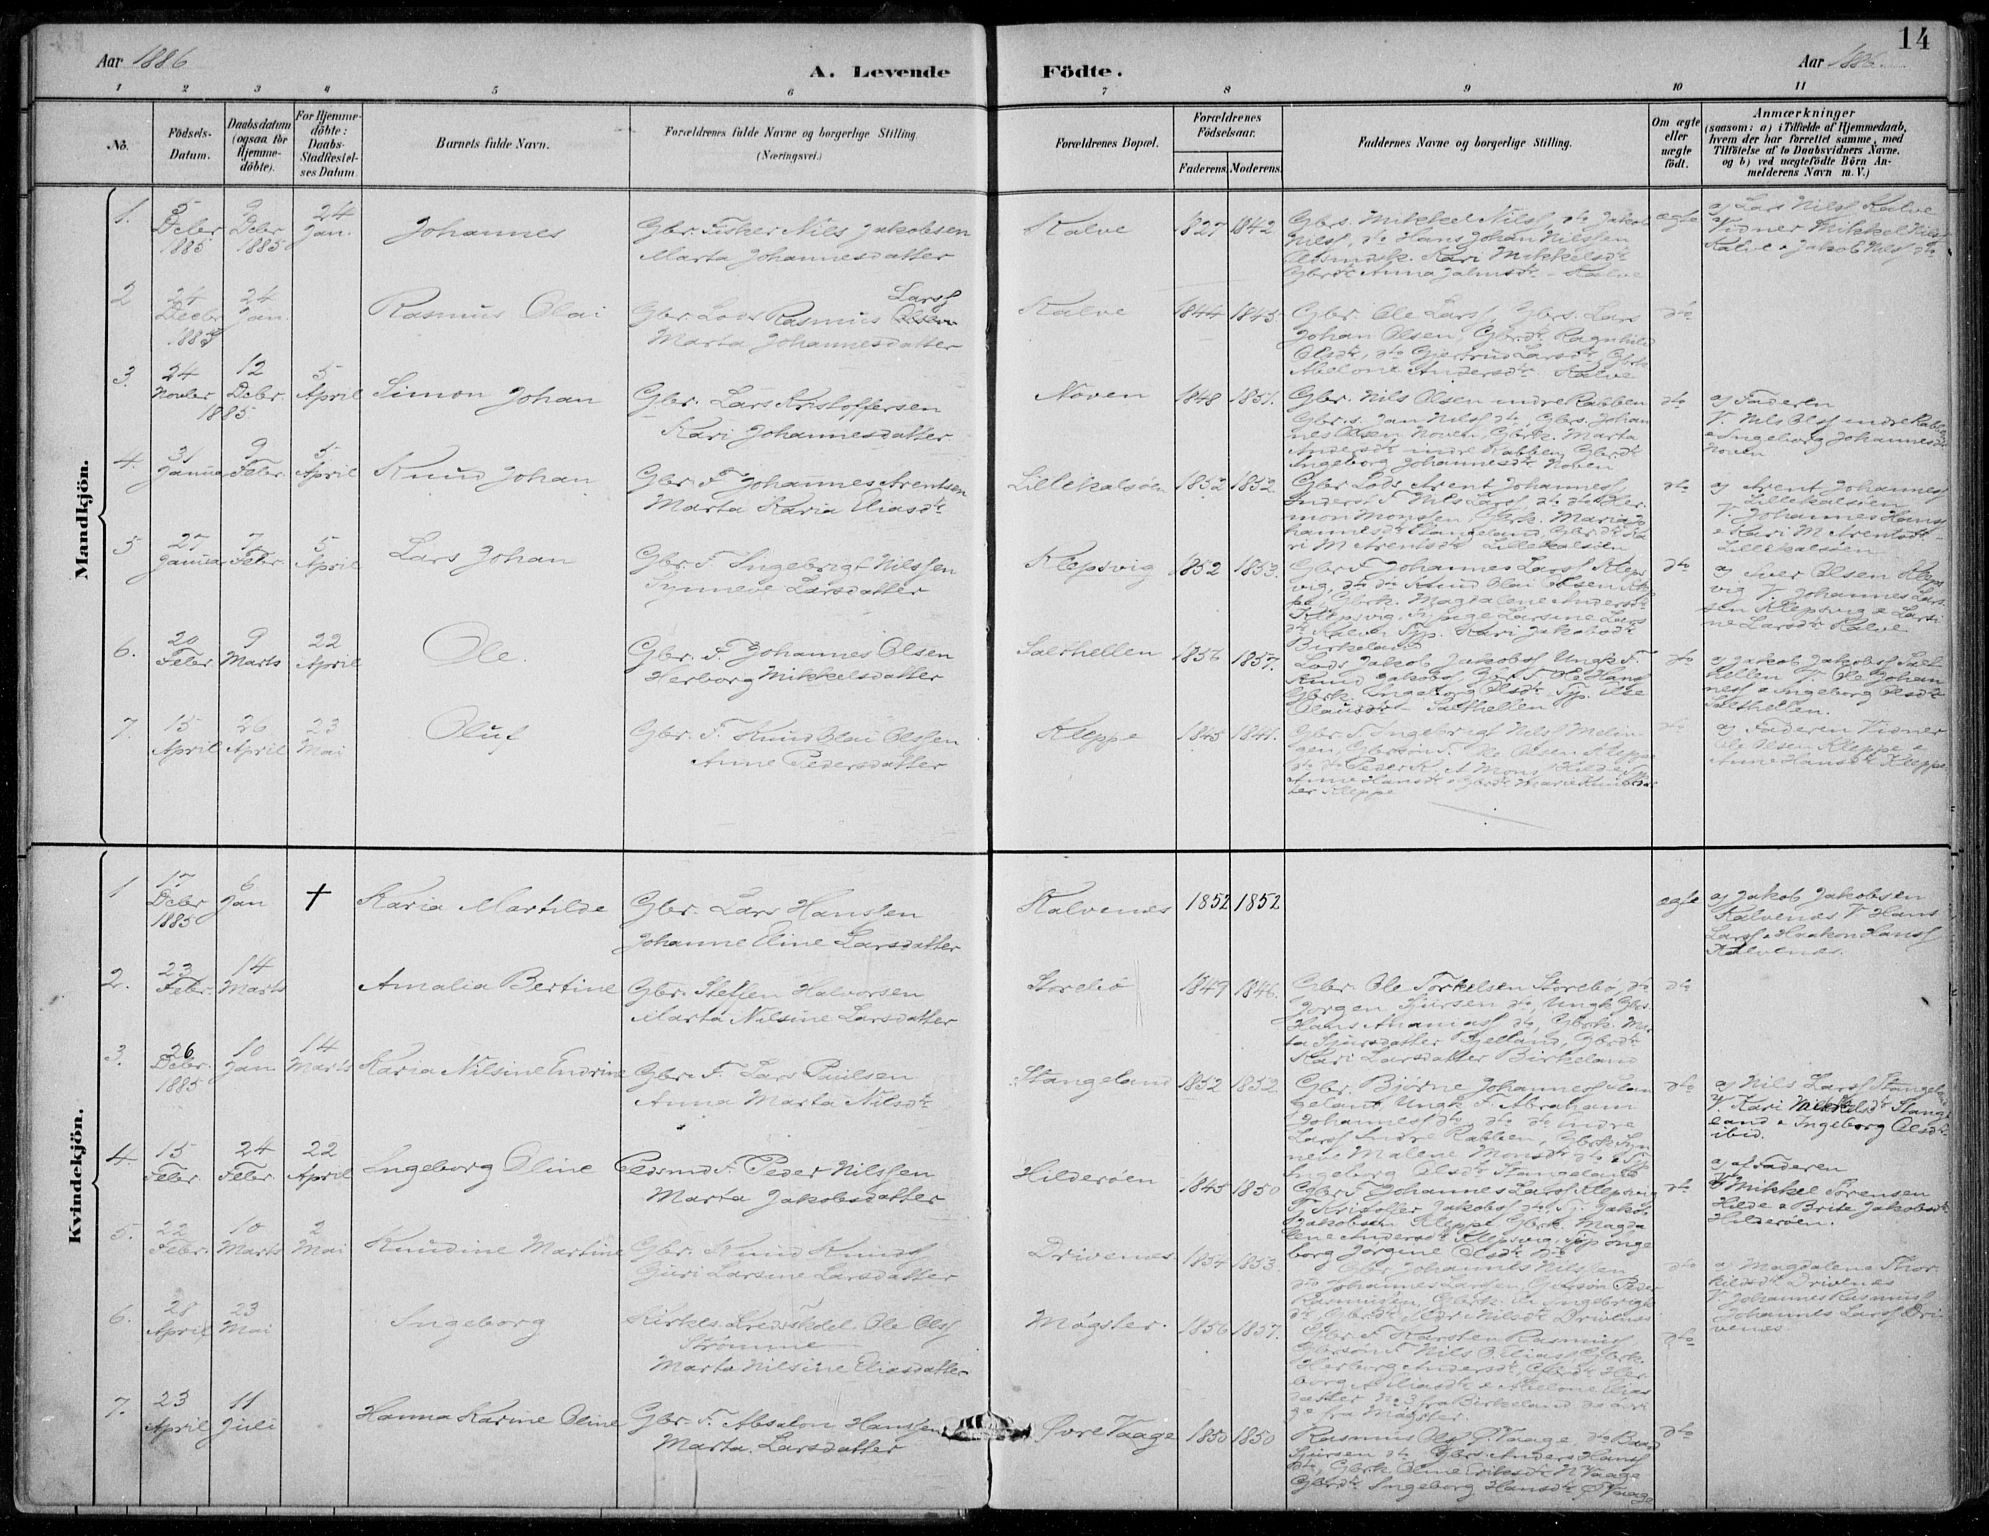 14
Aar 1886
A. Levende
Födte.
Aar 1886.
1 2 3 4 5 6 7 8 9 10 11
No.
Födsels-
Datum.
Daabsdatum
(ogsaa for
Hjemme-
döbte).
For Hjemme-
döbte:
Daabs-
Stadfæstel-
ses Datum
Barnets fulde Navn.
Forældrenes fulde Navne og borgerlige Stilling.
(Næringsvei.)
Forældrenes Bopæl.
Forældrenes
Födselsaar.
Faderens. Moderens.
Faddernes Navne og borgerlige Stilling.
Om ægte
eller
uægte
født.
Anmærkninger
(saasom: a) i Tilfælde af Hjemmedaab,
hvem der har forrettet samme, med
Tilföielse af to Daabsvidners Navne,
og b) ved uægtefödte Börn An-
melderens Navn m. V.)
Mandkjön.
1. 5 Decbr 1885
9 Decbr 1885
24 Jan.
Johannes
Gbr. Fisker Nils Jakobsen
Marta Johannesdatter
Kalve
1827 1842
Gbrs. Mikkel Nilss, dto Jakob
Nilss, dto Hans Johan Nilssen
Kari Mikkelsdt
Gbrdt Anna - Kalve
ægte
a) Lars Nilss Kalve
Vidner Mikkel Nilss
Kalve & Jakob Nilss dto
2 24 Decbr 1885
24 Jan.
Rasmus Olai
Larss
Gbr. Lods Rasmus Olsen
Marta Johannesdatter
Kalve
1844 1845.
Gbr. Ole Larss, Gbrs. Lars
Johan Olsen, Gbrdt Ragnhild
Olsdt, dto Gjertrud Larsdt, Gbrk
Abelone Andersdt Kalve
dto
3. 24 Novbr
12 Decbr.
1885
5 April
Simon Johan
Gbr. Lars Kristoffersen
Kari Johannesdatter
Noven
1848 1851.
Gbr. Nils Olsen indre Rabben
Gbrs. Jan Nilss dto, Gbrs. Johan
nes Olsen Noven, Gbrk. Marta
Andersdt indre Rabben, Gbrdt
Ingeborg Johannesdt Noven
dto
a) Faderen
V. Nils Olss indre Rabben
& Ingeborg Johannesdt
Noven
4. 31 Janua
9 Febr.
5 April
Knud Johan
Gbr. F. Johannes Arentsen
Marta Karia Eliasdt
Lillekalsöen
1852 1852.
Gbr. Lods Arent Johanness
F. Nils Larss, dto dto Her
mon Monsen, Gbrk. Maria Jo
hannesdt Stangeland, Gbrdt Ka
ri M Arentsdt Lillekalsöen
dto
a) Arent Johanness
Lillekalsöen
V. Johannes Hanss
& Kari M Arentsdt
Lillekalsöen
5 27 Janua
7 Febr.
5 April
Lars Johan
Gbr. F. Ingebrigt Nilssen
Synneve Larsdatter
Klepsvig
1852 1853.
Gbr F. Johannes Larss Kleps
vig, dto dto Knud Olai Olsen Klep
pe, Gbrk. Magdalene Andersdt
Klepsvig, Larsine Lars
dt Kalve, Kari Jakobsdt
Birkeland
dto
a) Iver Olsen Kleps
vig V. Johannes Lars
sen Klepsvig & Larsi
ne Larsdt Kalve
6. 20 Febr.
9 Marts
22 April
Ole.
Gbr. F. Johannes Olsen
Herborg Mikkelsdatter
Salthellen
1856 1857.
Lods Jakob Jakobss, Ungk. F.
Knud Jakobss, Gbr. F. Ole Hanss
Gbrk. Ingeborg Olsdt,
Olausdt - Salthellen
dto
a) Jakob Jakobss Salt
hellen V. Ole Johan
ness & Ingeborg Olsdt
Salthellen.
7. 15 April
26 April
23 Mai
Oluf
Gbr. F. Knud Olai Olssen
Anne Pedersdatter
Kleppe
1845 1841.
Gbr. F. Ingebrigt Nilss Melin
gen, Gbrsøn F. Ole Olsen Kleppe
dto dto Peder K. A. Mons Hilde,
Anne Hansdt & Gbrdt Marie Knudsdat
ter Kleppe
dto
a) Faderen Vidner
Ole Olsen Kleppe &
Anne Hansdt Kleppe
Kvindekjön.
1 17 Decbr 1885
6 Jan
+
Karia Martilde
Gbr. Lars Hanssen
Johanne Eline Larsdatter
Kalvenes
1852 1852
ægte
a) Jakob Jakobsen
Kalvenes V. Hans
Larss & Haakon Hanss
Kalvenes.
2. 23 Febr.
14 Marts
Amalia Bertine
Gbr. Steffen Halvorsen
Marta Nilsine Larsdatter
Storebö
1849 1846.
Gbr. Ole Torkelsen Storebö, dto
Jorgen Sjursen dto, Ungk. Gbs.
Hans Ananiass dto, Gbrk. Mar
ta Sjursdatter Bjelland, Gbrdt
Kari Larsdatter Birkeland
dto
3. 26 Decbr. 1885
10 Jan.
14 Marts
Karia Nilsine Endrine
Gbr. F. Lars Paulsen
Anna Marta Nilsdt
Stangeland
1852 1852.
Gbr. Björne Johanness Stan
geland Ungk F. Abraham
Johanness dto, dto dto Endre
Larss Indre Rabben, Gbrk. Syn
neve Malene Monsdt dto &
Ingeborg Olsdt Stangeland
dto
a) Nils Larss Stangeland
V. Kari Mikkelsdt Stange
land & Ingeborg Olsdt
ibid.
4. 15 Febr.
24 Febr.
22 April
Ingeborg Oline
F. Peder Nilssen
Marta Jakobsdatter
Hilderöen
1845 1850
Gbr F. Johannes Larss Klepsvig
F. Kristoffer Jakobss dto, Jakob
Jakobsen Kleppe, Gbrk. Magda
lene Andersdt Klepsvig, Inge
borg Jörgine Olsdt dto
dto
a) af Faderen
V Mikkel Sörensen
Hilde & Brite Jakobsdt
Hilderöen.
5. 22 Febr.
10 Marts
2 Mai
Knudine Martine
Gbr. Knud Knudss
Guri Larsine Larsdatter
Drivenes
1854 1853.
Gbr. Johannes Nilssen
dto Johannes Larssen, Gbrsön Peder
Rasmussen, Gbrk. Ingebrigts
dt, Gbrdt Nilsdt Drivenes
dto
a) Magdalena Thor
kildsdt Drivenes
V. Johannes Rasmuss
Johannes Larss Dri
venes.
6. 28 April
23 Mai
Ingeborg
Ole Olss
Strömme
Marta Nilsine Eliasdatter
Møgster.
1856 1857.
Gbr. F. Karsten Rasmuss
Gbrsön F. Nils O. Eliass, Gbrk.
Herborg Andersdt, Gbrdt Her
borg A Eliasdt & Abelone Elias
datter No 3 fra Birkeland, de øvri
ge fra Møgster.
dto
7. 23 April
11 Juli
Hanna Karine Oline
Gbr. F. Absalon Hanssen
Marta Larsdatter
Øvre Vaage
1850 1850
Rasmus Olss Ø. Vaage, dto Baard
Sjursen dto, Gbrs. Anders Hanss
dto, Gbrk. Oline Eriksdt N. Vaage
Gbrdt Ingeborg Hansdt Ø Vaage
dto